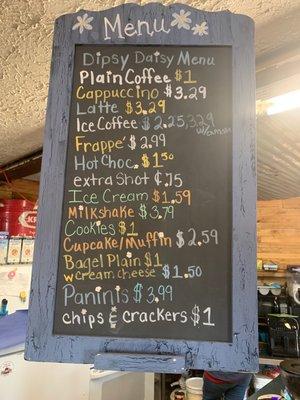 Menu
Dipsy Daisy Menu
Plain Coffee $1
Cappuccino $3.29
Latte $3.29
Ice Coffee $2.25, 3.29
Frappe' $2.99
Hot Choc. $1.50
extra Shot ¢.75
Ice Cream $1.59
Milkshake $3.79
Cookies $1
Cupcake/Muffin $2.59
Bagel Plain $1
w cream cheese $1.50
Paninis $3.99
chips & crackers $1